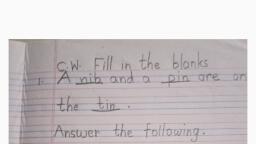 C.W. Fill in the blanks
1. A nib and a pin are on
the tin.
Answer the following.